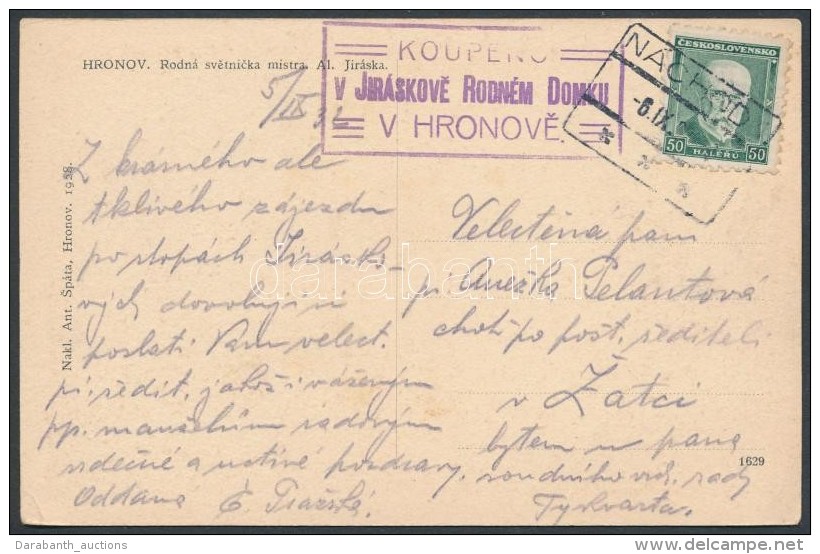 HRONOV. Rodná světnička mistra. Al. Jiráska.
KOUPENO
V JIRÁSKOVĚ RODNÉM DOMKU
V HRONOVĚ
NÁCHOD
-6.IX.
ČESKOSLOVENSKO
50 HALÉŘŮ 50
Nakl. Ant. Špáta, Hronov. 1928.
5/IX 32
Z krásného ale
tklivého zájezdu
po stopách Jirásko-
vých dovoluji si
poslati Vám velect.
pí. ředit. jakož i váženým
pp. manželům radovým
srdečné a uctivé pozdravy.
Oddaná
Velectěná paní
pí Anežka Pelantová
choť po pošt. řediteli
v Žatci
bytem u pana
soudního rady
Tykvarta.
1629
darabanth
Darabanth_auctions
delcampe.net